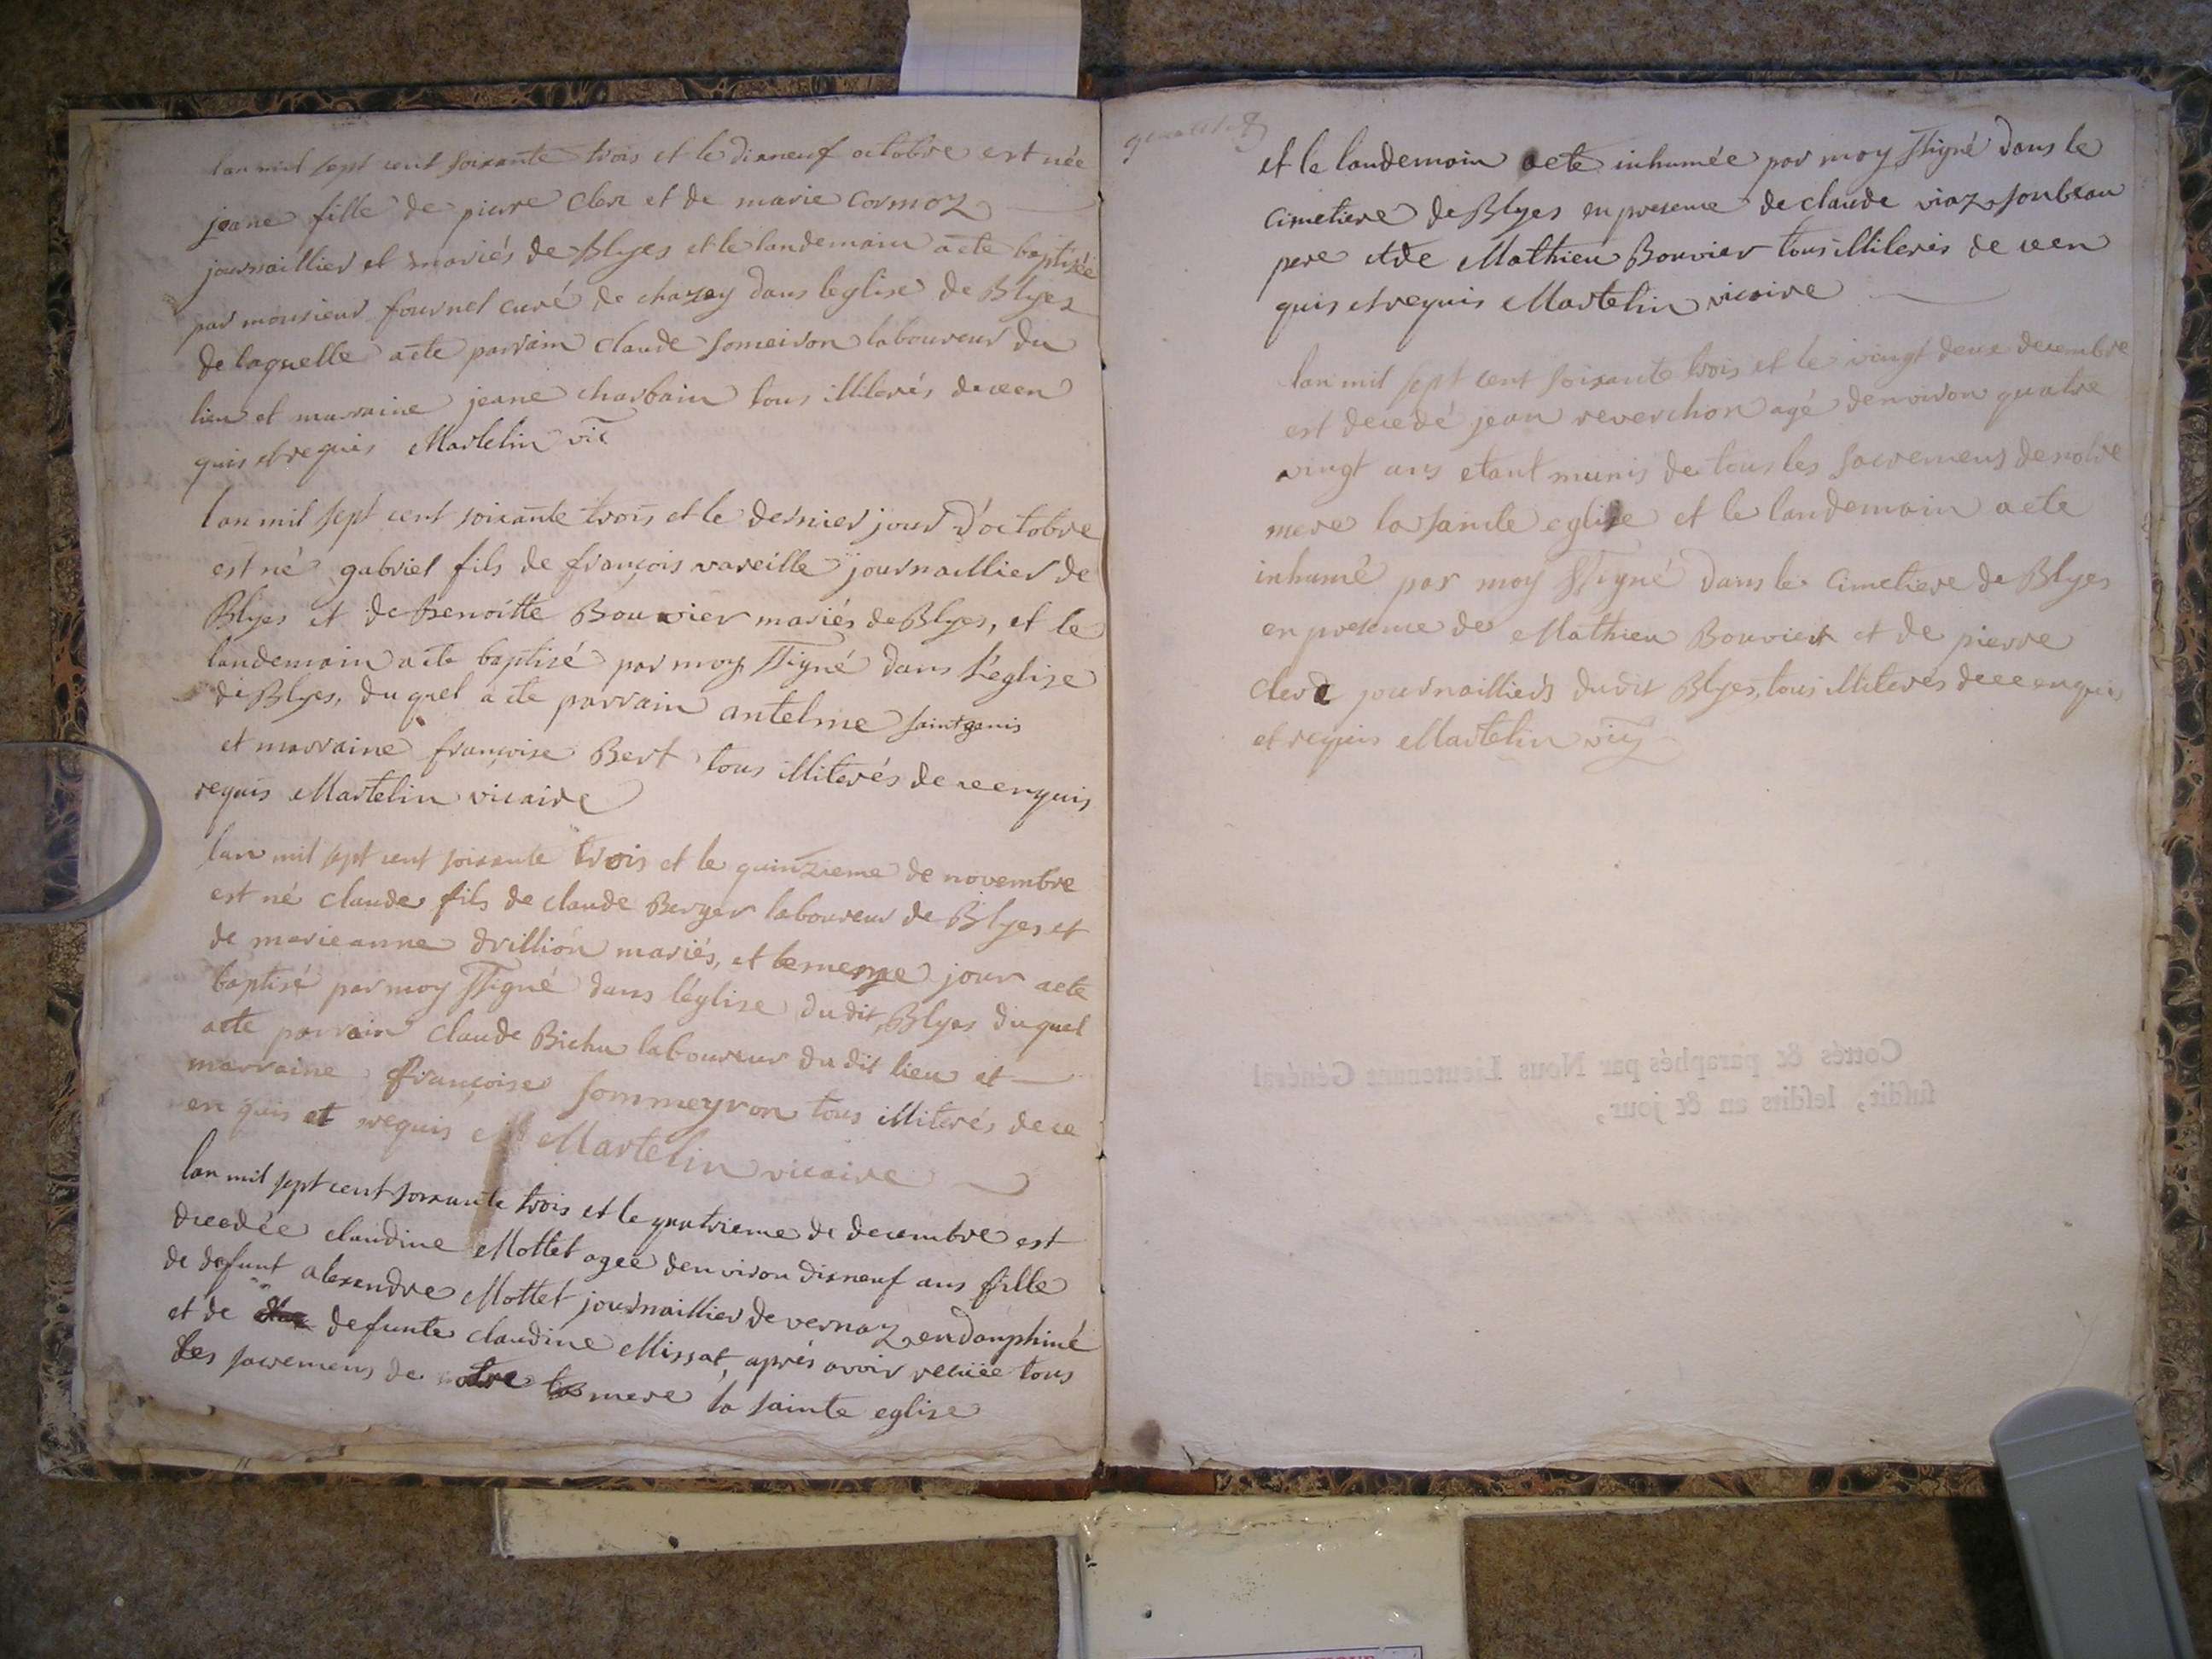 lan mil sept cent soixante trois et le dixneuf octobre est née
jeane fille de pierre clerc et de marie Cormoz
journaillier et mariés de Blyes et le landemain a ete baptisée
par monsieur fournel curé de chazey dans leglise de Blyes
de laquelle aete parrain claude someiron laboureur du
lieu et marraine jeane charbain tous illiterés de ce en
quis et requis Martelin vic
lan mil sept cent soixante trois et le dernier jour d'octobre
est né gabriel fils de françois vareille journaillier de
Blyes et de Benoitte Bouvier mariés de Blyes, et le
landemain aete baptizé par moy ssigné dans l'eglise
de Blyes, du quel a ete parrain antelme saint ganis
et marraine françoise Bert tous illiterés de ce enquis
requis Martelin vicaire
lan mil sept cent soixante trois et le quinzieme de novembre
est né claude fils de claude Berger laboureur de Blyes et
de marieanne drillion mariés, et le meme jour aete
baptisé par moy ssigné dans l'église dudit Blyes duquel
aete parrain claude Bichu laboureur du dit lieu et
marraine françoise sommeyron tous illiterés de ce
en quis et requis Martelin vicaire
lan mil sept cent soixante trois et le quatrieme de decembre est
decedée claudine Mottet agée denviron dixneuf ans fille
de defunt alexendre Mottet journaillier de vernaz en dauphiné
et de defunte claudine Missat, aprés avoir recüee tous
les sacremens de notre mere la sainte eglise
et le landemain aete inhumée par moy ssigné dans le
cimetiere de Blyes en presence de claude viaz son beau
pere et de Mathieu Bouvier tous illiterés de ce en
quis et requis Martelin vicaire
lan mil sept cent soixante trois et le vingt deux decembre
est decedé jean reverchon agé denviron quatre
vingt ans etant munis de tous les sacremens de notre
mere la sainte eglise et le landemain aete
inhumé par moy ssigné dans le cimetiere de Blyes
en presence de Mathieu Bouvier et de pierre
clerc journailliers dudit Blyes, tous illiterés de ce enquis
et requis Martelin vic
Cottés & paraphés par Nous Lieutenant Général
susdit, lesdits an & jour,